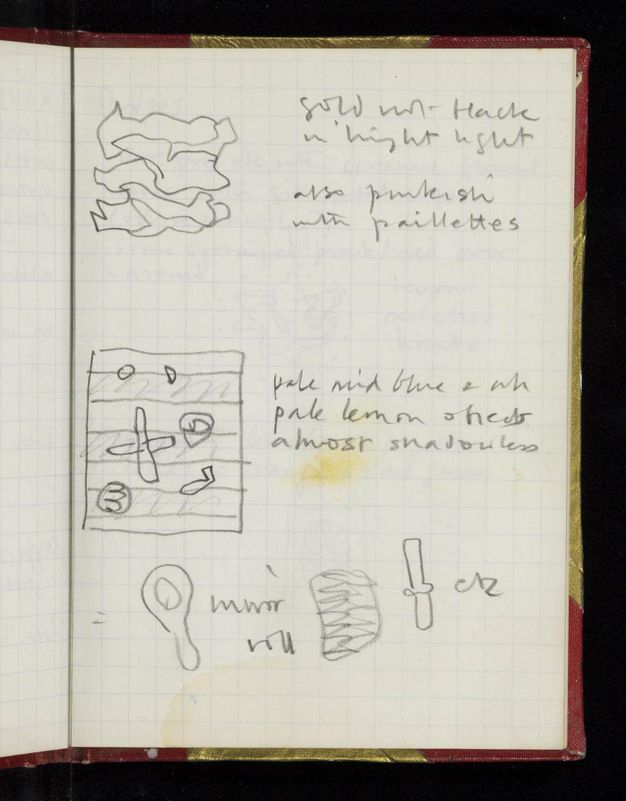 gold not black
in bright light
also pinkish
with paillettes
pale mid blue &
pale lemon objects
almost shadowless
= mirror
roll
etc